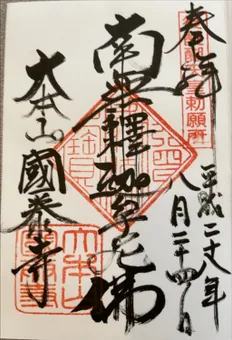 奉拝
平成二十八年
八月二十四日
南無釋迦牟尼佛
大本山國泰寺
勅願所
大本山
國泰寺